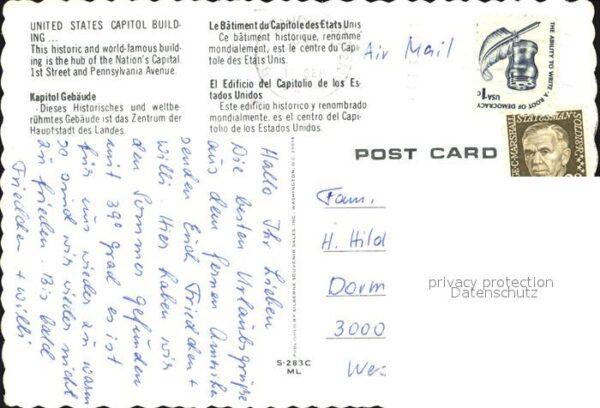 UNITED STATES CAPITOL BUILD-
ING ...
This historic and world-famous build-
ing is the hub of the Nation's Capital.
1st Street and Pennsylvania Avenue.
Kapitol Gebäude
- Dieses Historisches und weltbe-
rühmtes Gebäude ist das Zentrum der
Hauptstadt des Landes.
Le Bâtiment du Capitole des Etats Unis
Ce bâtiment historique, renommé
mondialement, est le centre du Capi-
tole des Etats Unis.
El Edificio del Capitolio de los Es-
tados Unidos
Este edificio historico y renombrado
mondialmente, es el centro del Capi-
tolio de los Estados Unidos.
Air Mail
THE ABILITY TO WRITE
A ROOT OF DEMOCRACY
USA 1c
C. MARSHALL
STATESMAN
SOLDIER
POST CARD
Hallo Ihr Lieben
Die besten Urlaubsgrüße
aus dem fernen Amerika
senden Euch Friedchen +
Willi. Hier haben wir
den Sommer gefunden
mit 39° grad es ist
für uns wieder zu warm
so sind wir wieder nicht
zu frieden. Bis bald
Friedchen + Willi
PUBLISHED BY SILBERNE SOUVENIR SALES, INC. WASHINGTON, D.C.
S-283C
ML
Fam.
H. Hild
Dorm
3000
Wes
privacy protection
Datenschutz